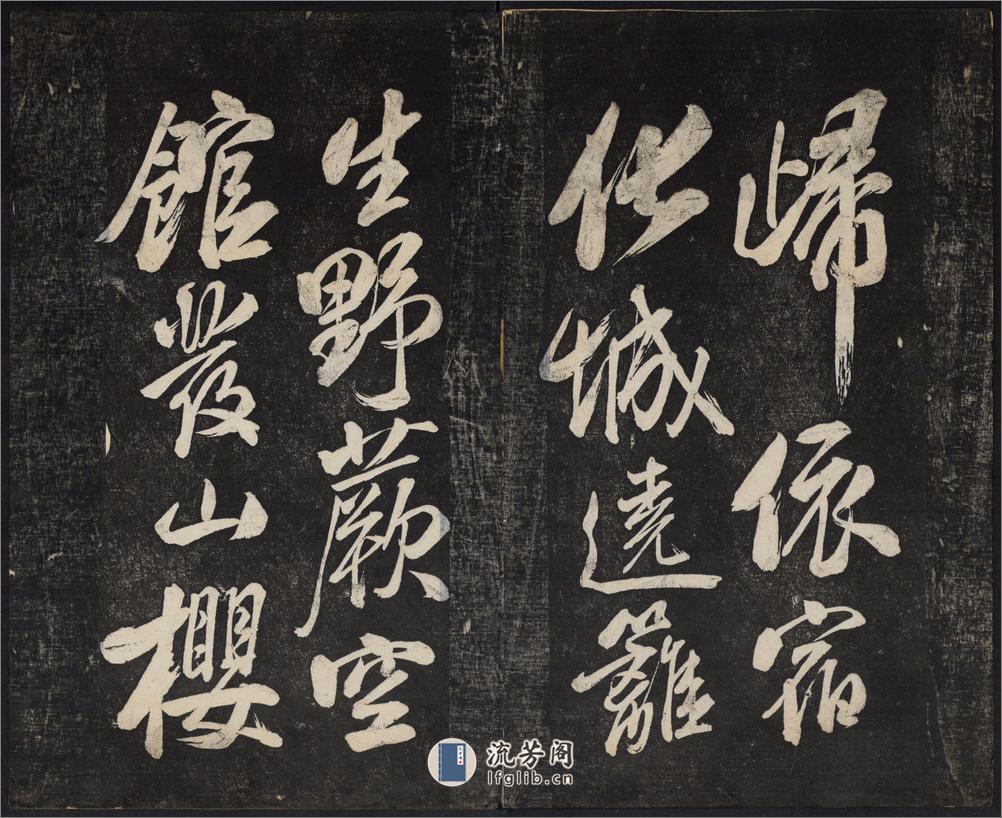 歸依宿
化城遶籬
生野蕨空
館發山櫻
流芳阁
lfglib.cn